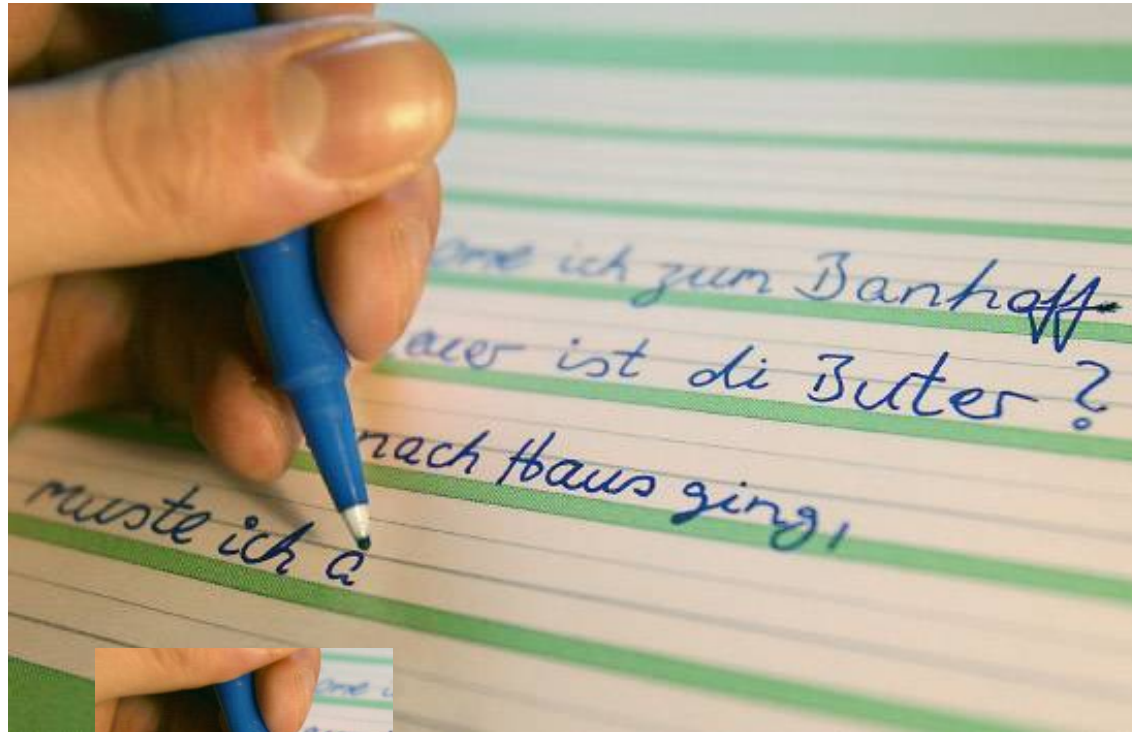 ome ich zum Banhoff
auer ist di Buter?
nach Haus ging,
muste ich a